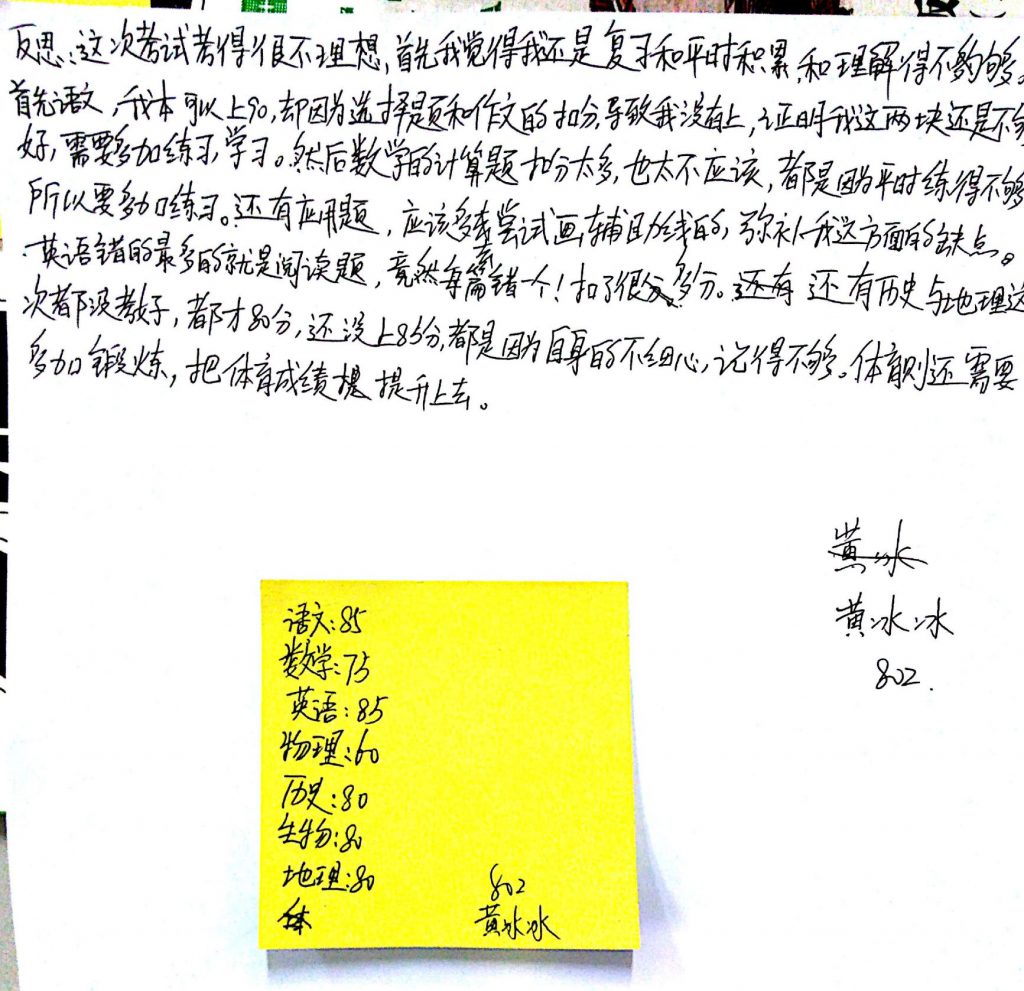 反思:这次考试考得很不理想,首先我觉得我还是复习和平时积累,和理解得不够够。
首先语文,我本可以上90,却因为选择题和作文的扣分,导致我没有上,证明我这两块还是不够
好,需要多加练习,学习。然后数学的计算题扣分太多,也太不应该,都是因为平时练得不够
所以要多加练习。还有应用题,应该多去尝试画辅助线的,弥补我这方面的缺点。
英语错的最多的就是阅读题,竟然每篇错一个!扣了很多分。还有 还有历史与地理这
次都没考好,都才80分,还没上85分,都是因为自身的不细心,记得不够。体育则还需要
多加锻炼,把体育成绩提 提升上去。
黄冰
黄冰冰
802.
语文:85
数学:75
英语:85
物理:60
历史:80
生物:80
地理:80
体
802
黄冰冰